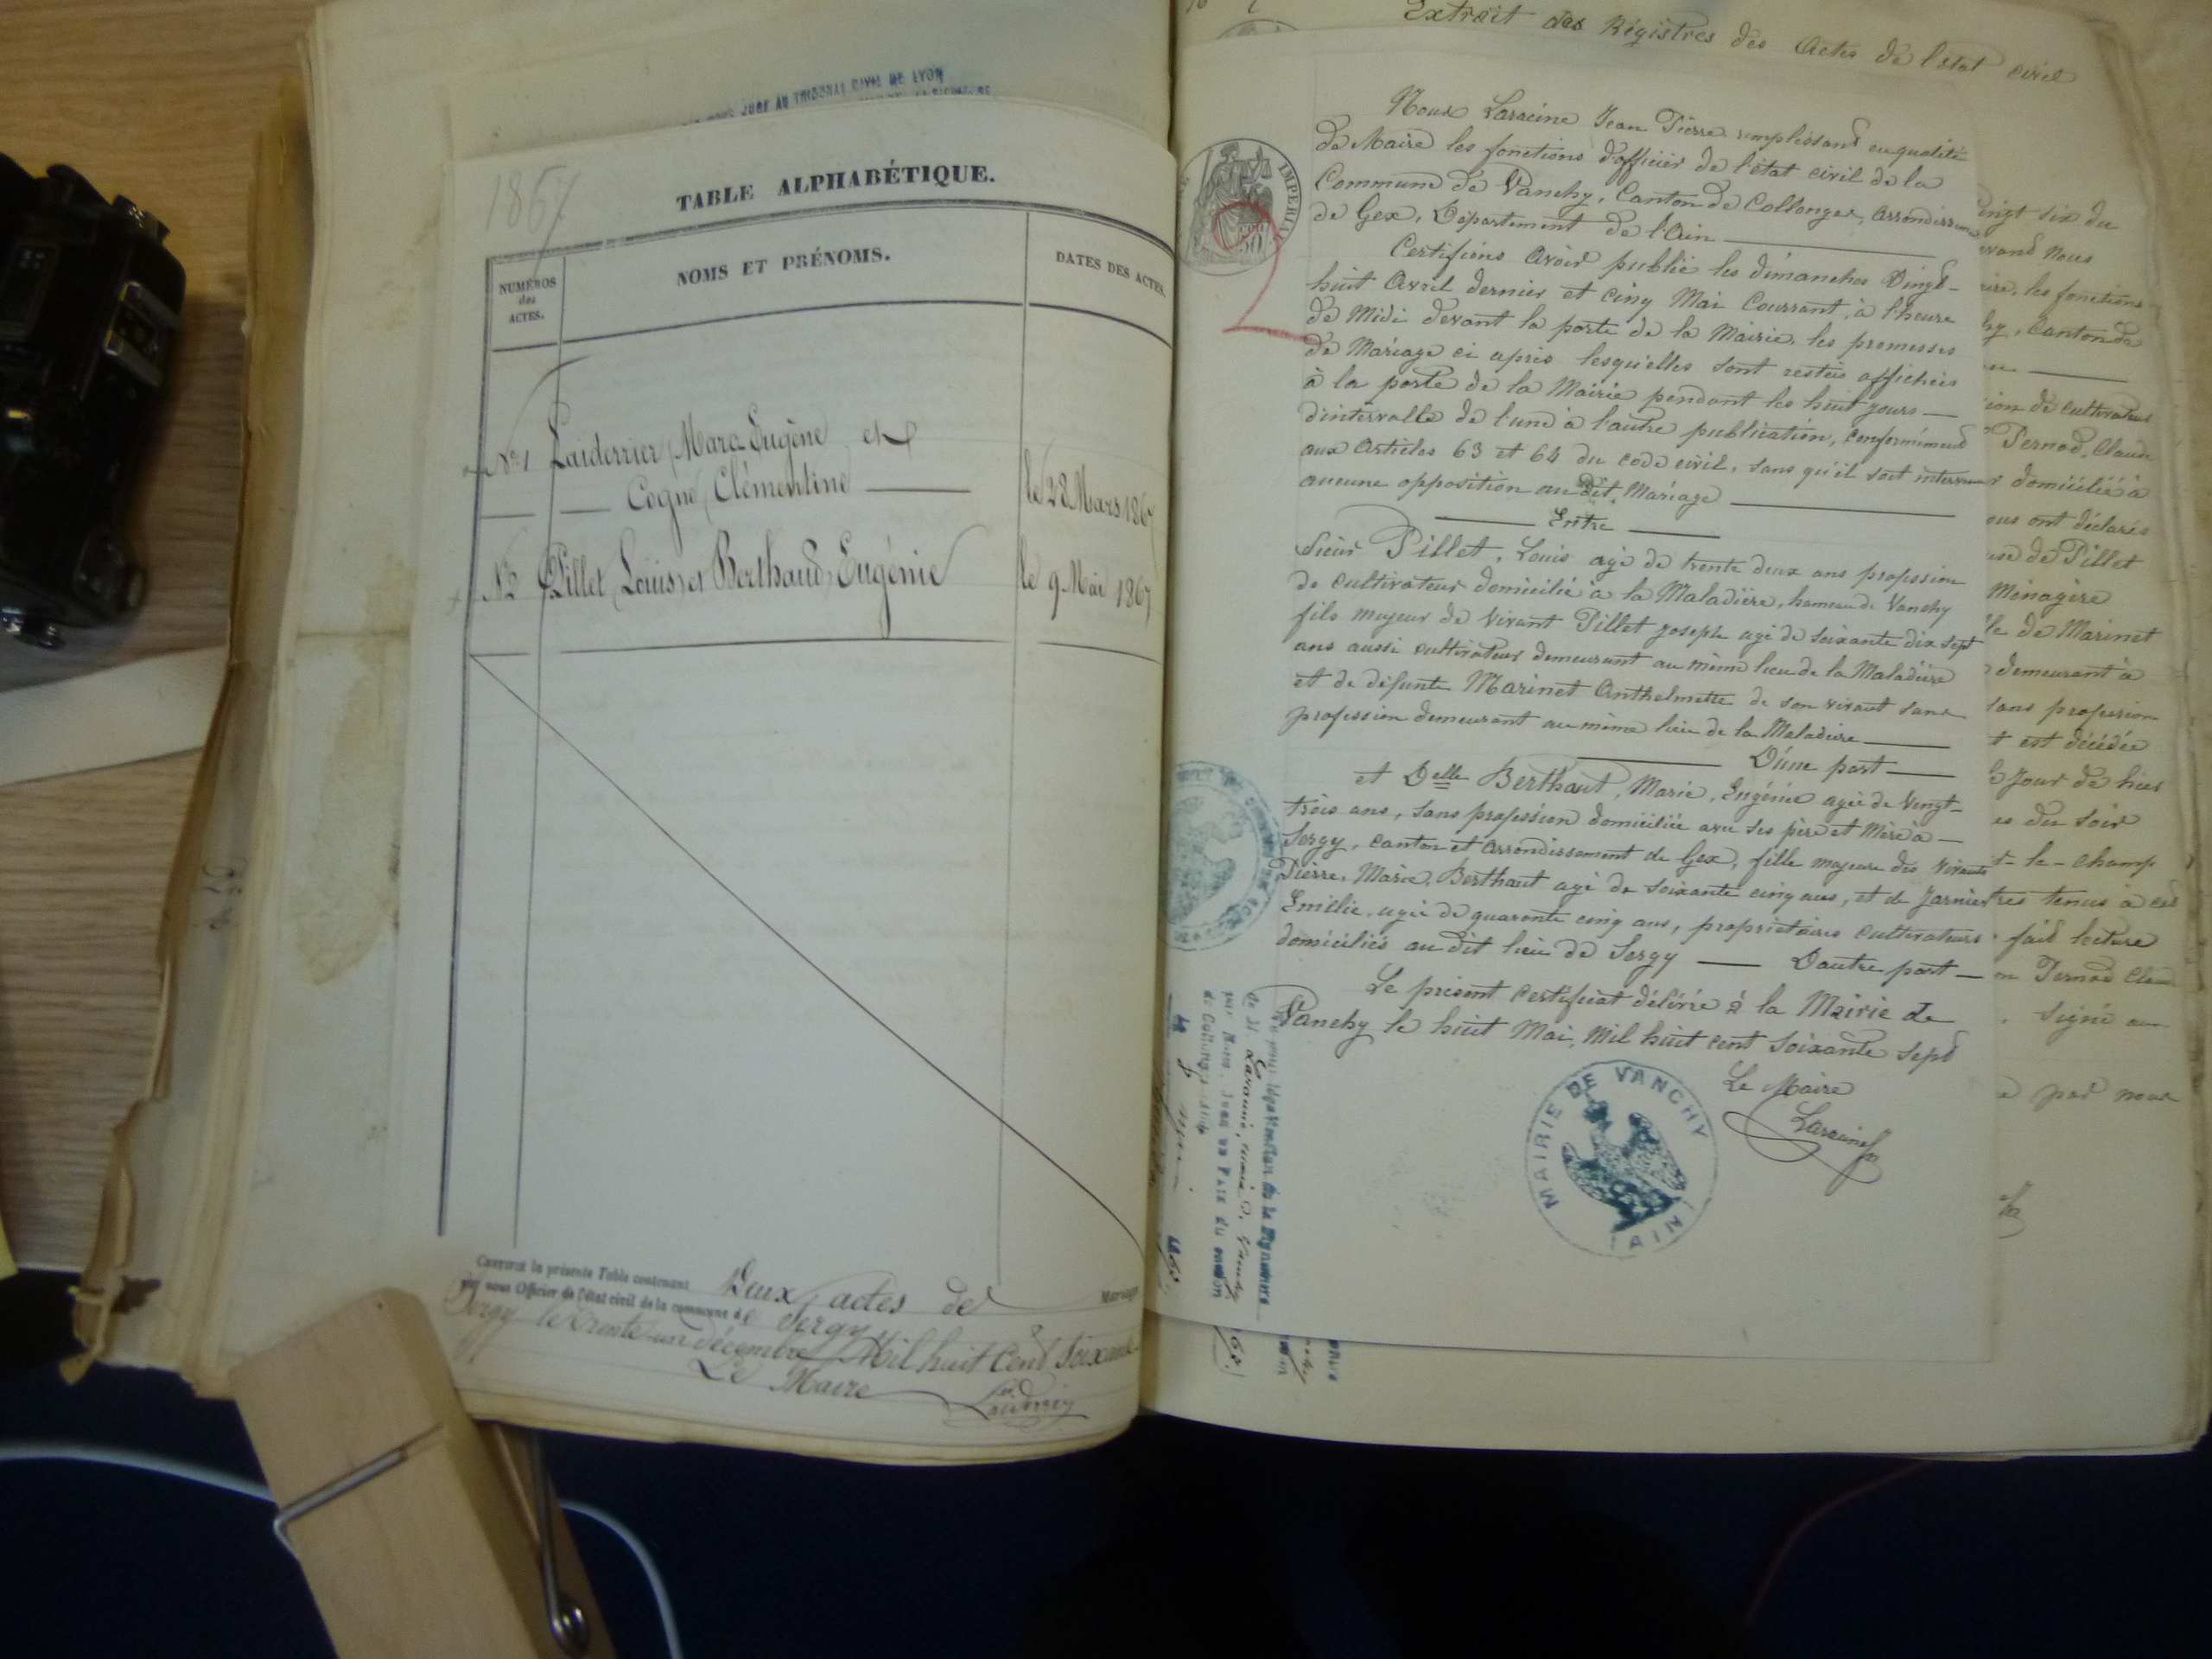 JUGE AU TRIBUNAL CIVIL DE LYON
1867
TABLE ALPHABÉTIQUE.
NUMÉROS
des
ACTES.
NOMS ET PRÉNOMS.
DATES DES ACTES.
N°1 Laiderrier Marc Eugène et
Cogne Clémentine
le 28 Mars 1867
N°2 Pillet Louis et Berthaud Eugénie
le 9 Mai 1867
Certifié la présente Table contenant Deux actes de Mariage
par nous Officier de l'état civil de la commune de Sergy
Sergy le trente-un décembre Mil huit Cent Soixante
Le Maire
Extrait des Régistres des Actes de l'état civil
IMPERIAL
50
2
Nous Laracine Jean Pierre remplissant en qualité
de Maire les fonctions d'officier de l'état civil de la
Commune de Vanchy, Canton de Collonges, arrondissement
de Gex, Département de l'Ain
Certifions avoir publié les dimanches Vingt-
huit Avril dernier et cinq Mai Courrant, à l'heure
de Midi devant la porte de la Mairie, les promesses
de Mariage ci après lesqu'elles sont restés affichées
à la porte de la Mairie pendant les huit jours
d'intervalle de l'une à l'autre publication, conformément
aux Articles 63 et 64 du code civil, sans qu'il soit intervenu
aucune opposition au dit Mariage
Entre
Sieur Pillet, Louis agé de trente deux ans profession
de cultivateur domicilié à la Maladière, hameau de Vanchy
fils majeur de vivant Pillet Joseph agé de soixante dix sept
ans aussi cultivateur demeurant au même lieu de la Maladière
et de défunte Marinet Anthelmette de son vivant sans
profession demeurant au même lieu de la Maladière
D'une part
et Delle Berthaut, Marie, Eugénie agée de Vingt-
trois ans, sans profession domiciliée avec ses père et Mère à
Sergy, canton et arrondissement de Gex, fille majeure des vivants
Pierre, Marie, Berthaut agé de soixante cinq ans, et de Jarnier
Emilie, agée de quarante cinq ans, propriétaires cultivateurs
domiciliés au dit lieu de Sergy D'autre part
Le présent certificat délivré à la Mairie de
Vanchy le huit Mai, mil huit cent soixante sept
Le Maire
Laracine
MAIRIE DE VANCHY
(AIN)
légalisation de la signature
de M. Laracine, maire de Vanchy
par Nous, Juge de Paix du canton
de Collonges
vingt six du
devant Nous
, les fonctions
, Canton de
de cultivateur
Pernod, Claude
domicilié à
ont déclarés
de Pillet
Ménagère
de Marinet
demeurant à
sans profession
est décédée
Jour de hier
du soir
le-champ
tenus à cet
fait lecture
Pernod
signé
par nous